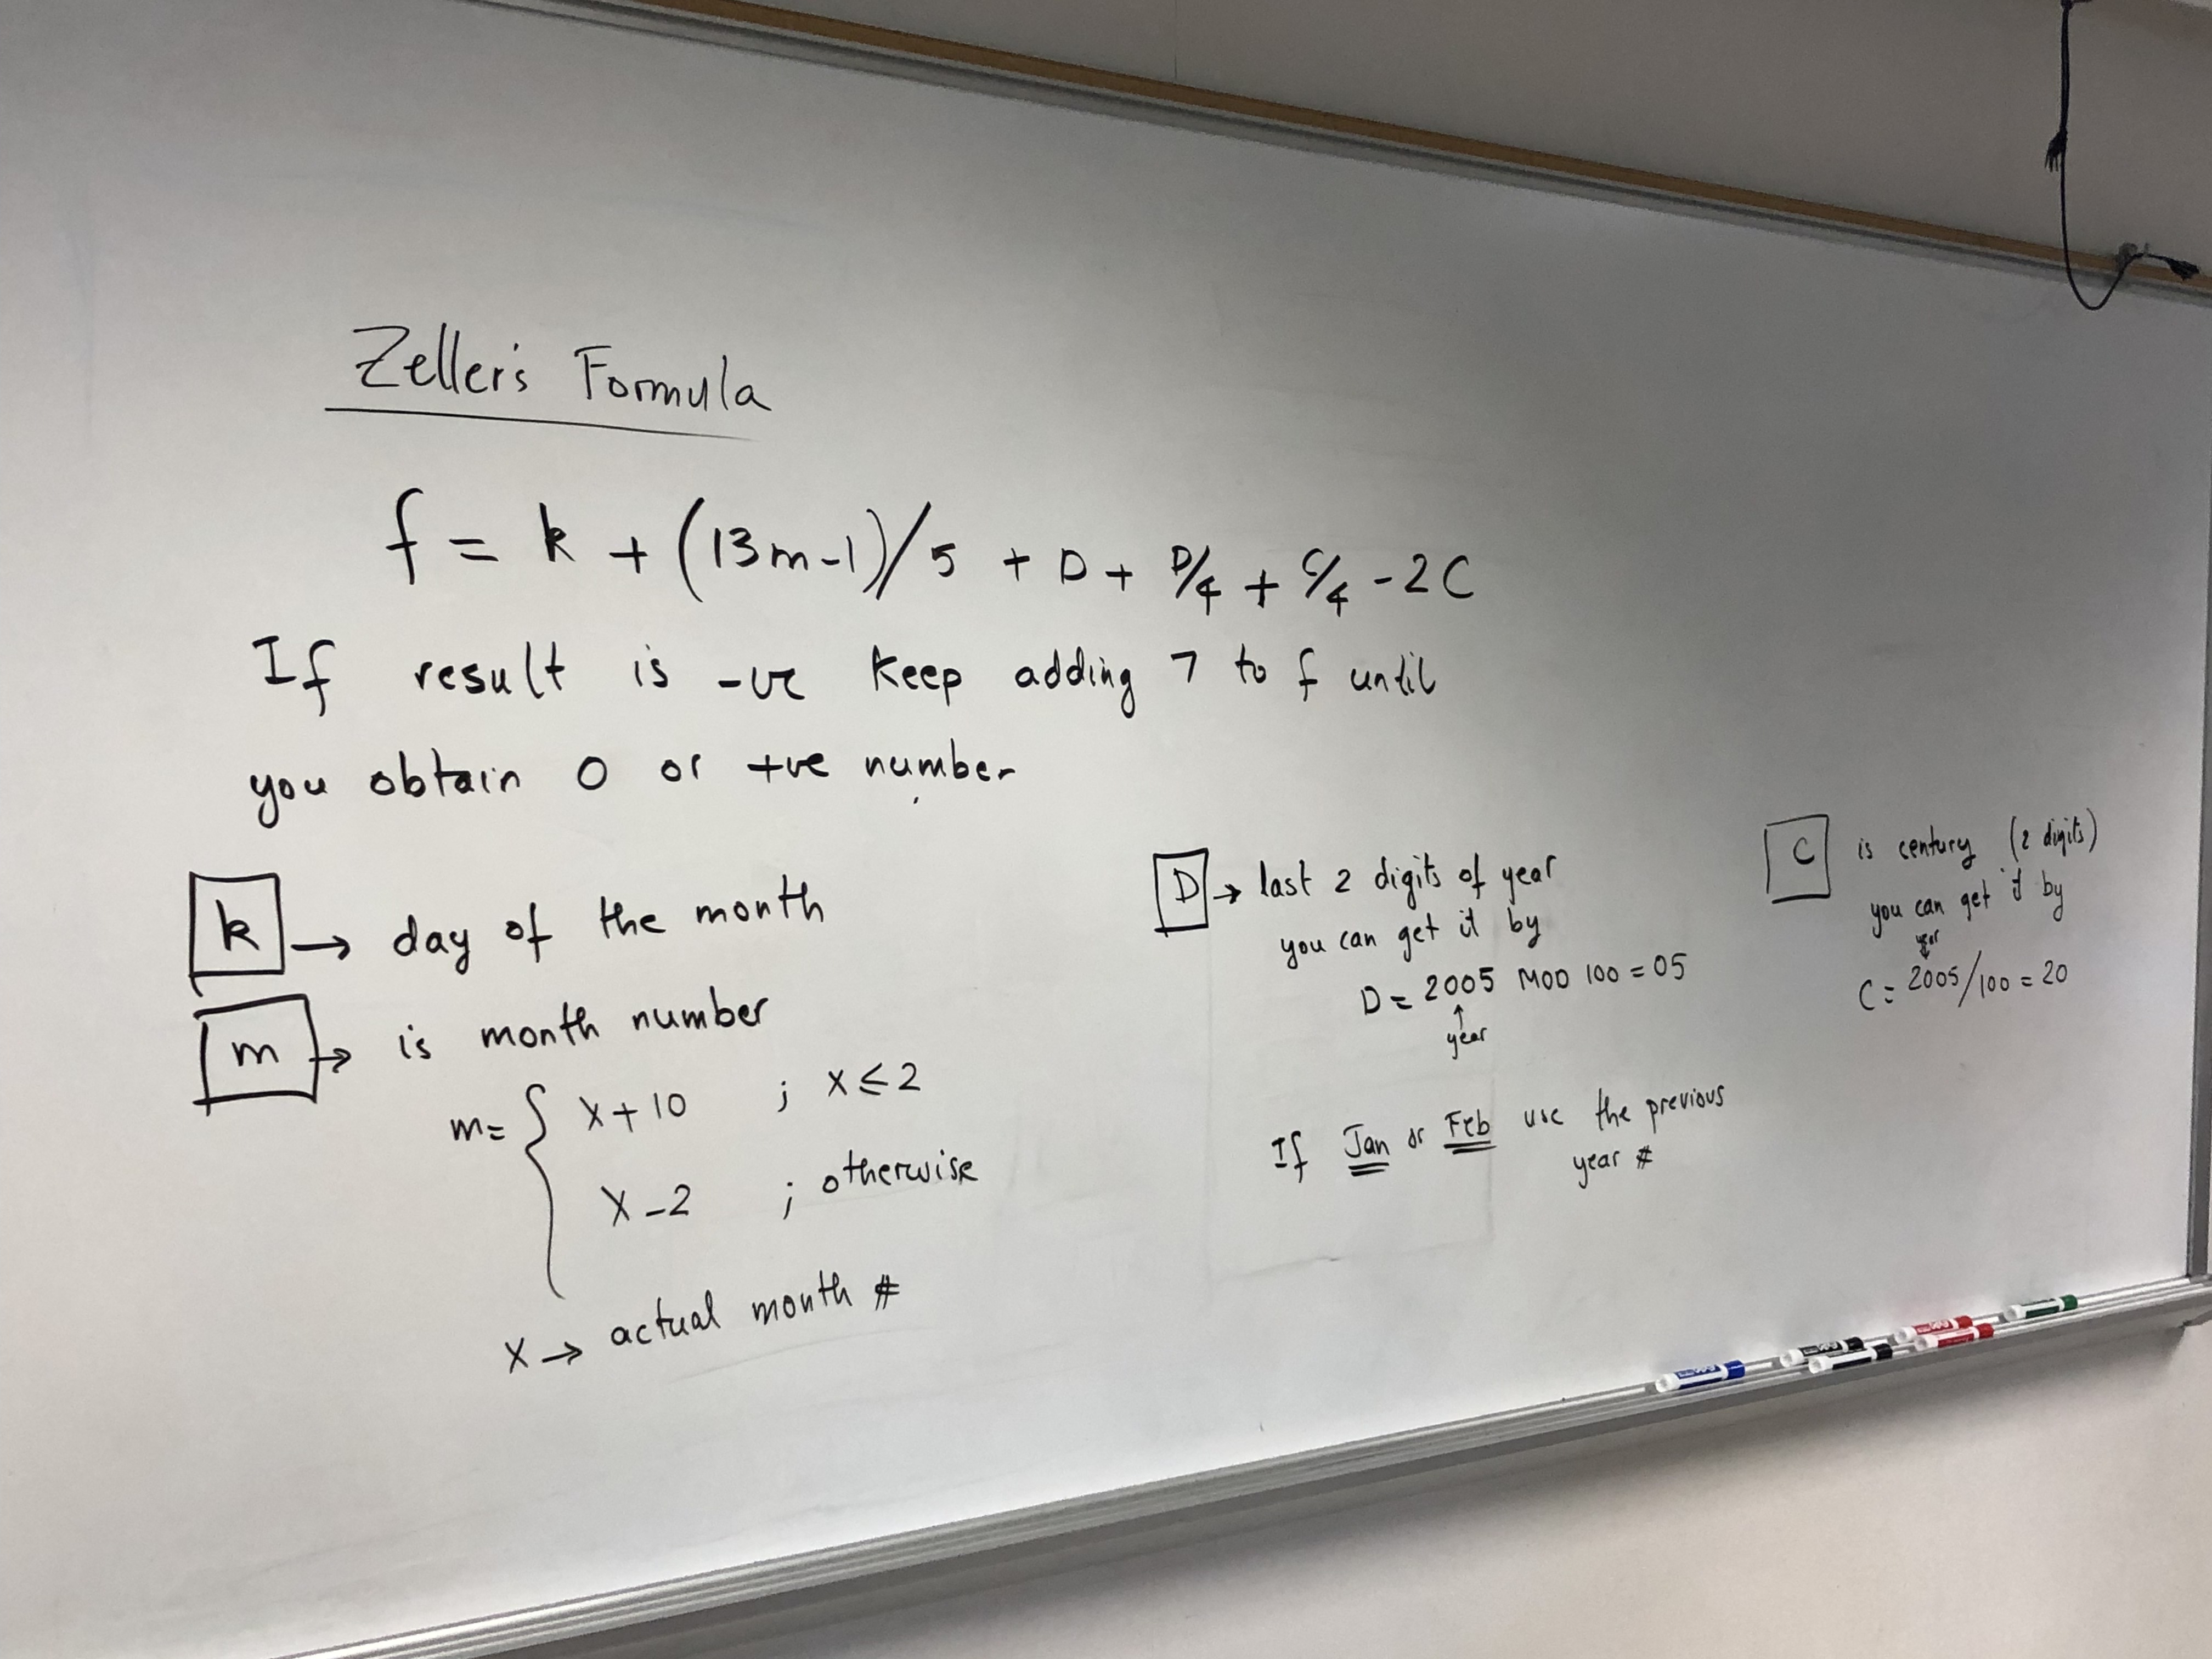 Zeller's Formula
f = k + (13m-1)/5 + D + D/4 + C/4 - 2C
If result is -ve keep adding 7 to f until
you obtain 0 or +ve number
k → day of the month
m → is month number
m = { x + 10 ; x ≤ 2
x - 2 ; otherwise
x → actual month #
D → last 2 digits of year
you can get it by
D = 2005 MOD 100 = 05
↑
year
If Jan or Feb use the previous
year #
C is century (2 digits)
you can get it by
year
↓
C = 2005/100 = 20